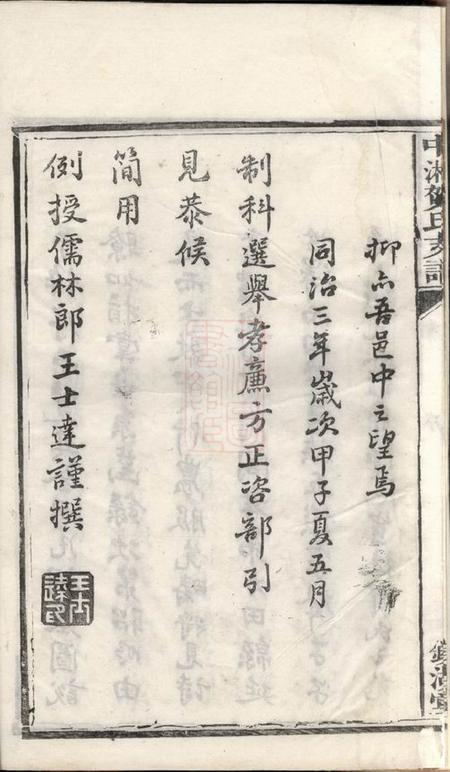 中湘賀氏支譜
抑亦吾邑中之望焉
同治三年歲次甲子夏五月
制科選舉孝廉方正咨部引
見恭候
簡用
例授儒林郎王士達謹撰